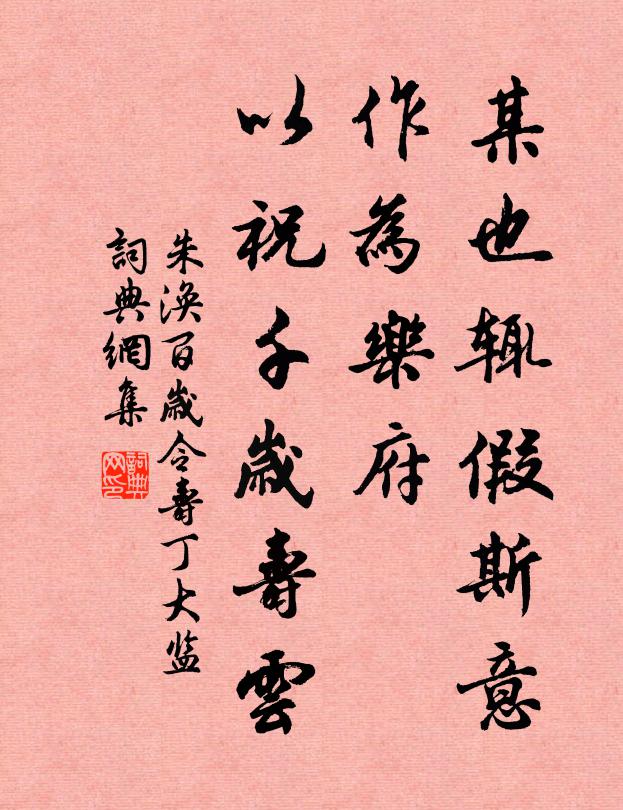 某也辄假斯意
作為樂府
以祝千歲壽雲
朱渙百歲令壽丁大监
詞典網集
詞典网印